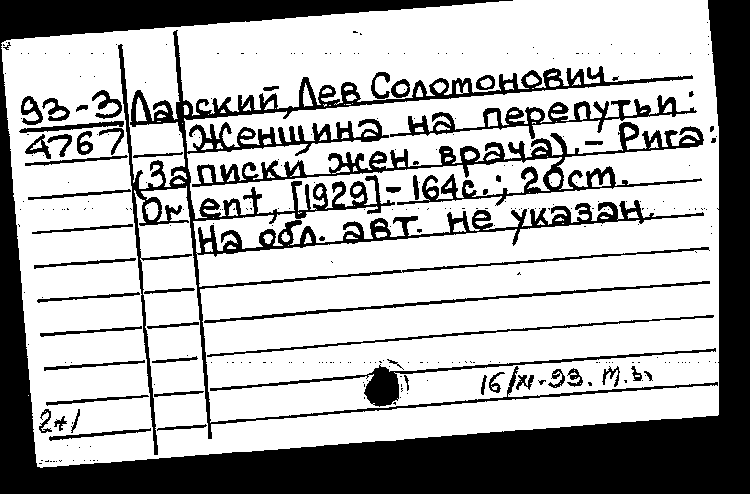 93-3 Ларский, Лев Соломонович.
4767 Женщина на перепутьи:
(Записки жен. врача). - Рига:
Orient, [1929]. - 164с.; 20см.
На обл. авт. не указан.
16/XI-93.
2*1